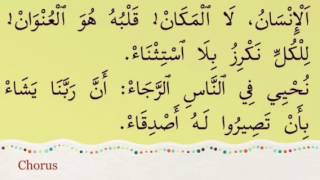 اَلْإِنْسَانُ، لَا ٱلْمَكَانْ، قَلْبُهُ هُوَ ٱلْعُنْوَانْ،
لِلْكُلِّ نَكْرِزُ بِلَا ٱسْتِثْنَاءْ.
نُحْيِي فِي ٱلنَّاسِ ٱلرَّجَاءْ: أَنَّ رَبَّنَا يَشَاءْ
بِأَنْ تَصِيرُوا لَهُ أَصْدِقَاءْ.
Chorus